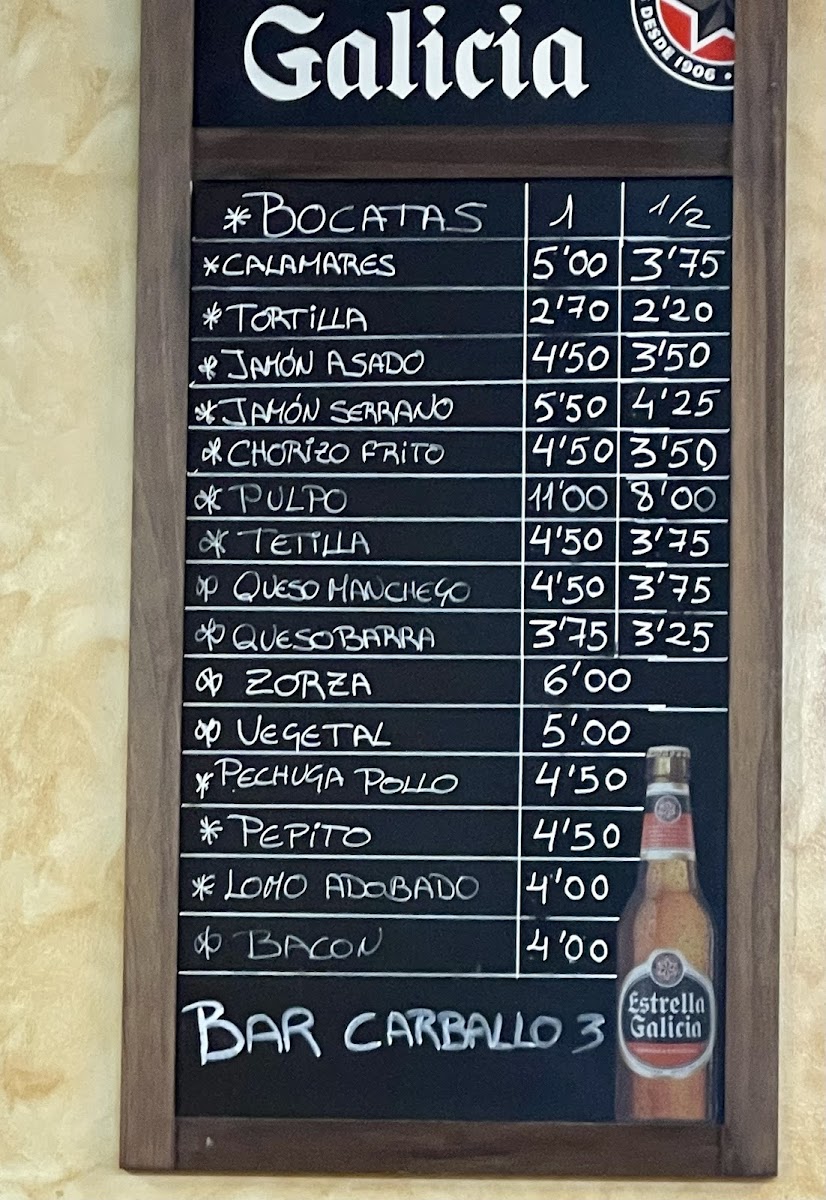 Galicia
DESDE 1906
*BOCATAS 1 1/2
*CALAMARES 5'00 3'75
*TORTILLA 2'70 2'20
*JAMÓN ASADO 4'50 3'50
*JAMÓN SERRANO 5'50 4'25
*CHORIZO FRITO 4'50 3'50
*PULPO 11'00 8'00
*TETILLA 4'50 3'75
*QUESO MANCHEGO 4'50 3'75
*QUESO BARRA 3'75 3'25
*ZORZA 6'00
*VEGETAL 5'00
*PECHUGA POLLO 4'50
*PEPITO 4'50
*LOMO ADOBADO 4'00
*BACON 4'00
BAR CARBALLO 3
Estrella
Galicia